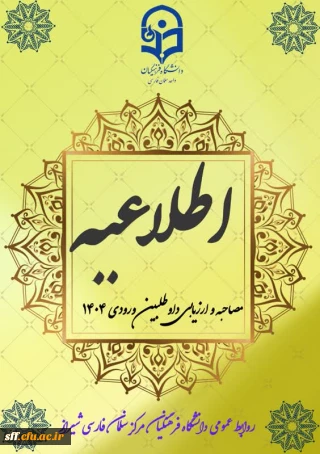 دانشگاه فرهنگیان
واحد سلمان فارسی
اطلاعیه
مصاحبه و ارزیابی داوطلبین ورودی ۱۴۰۴
روابط عمومی دانشگاه فرهنگیان مرکز سلمان فارسی شیراز
slf.cfu.ac.ir